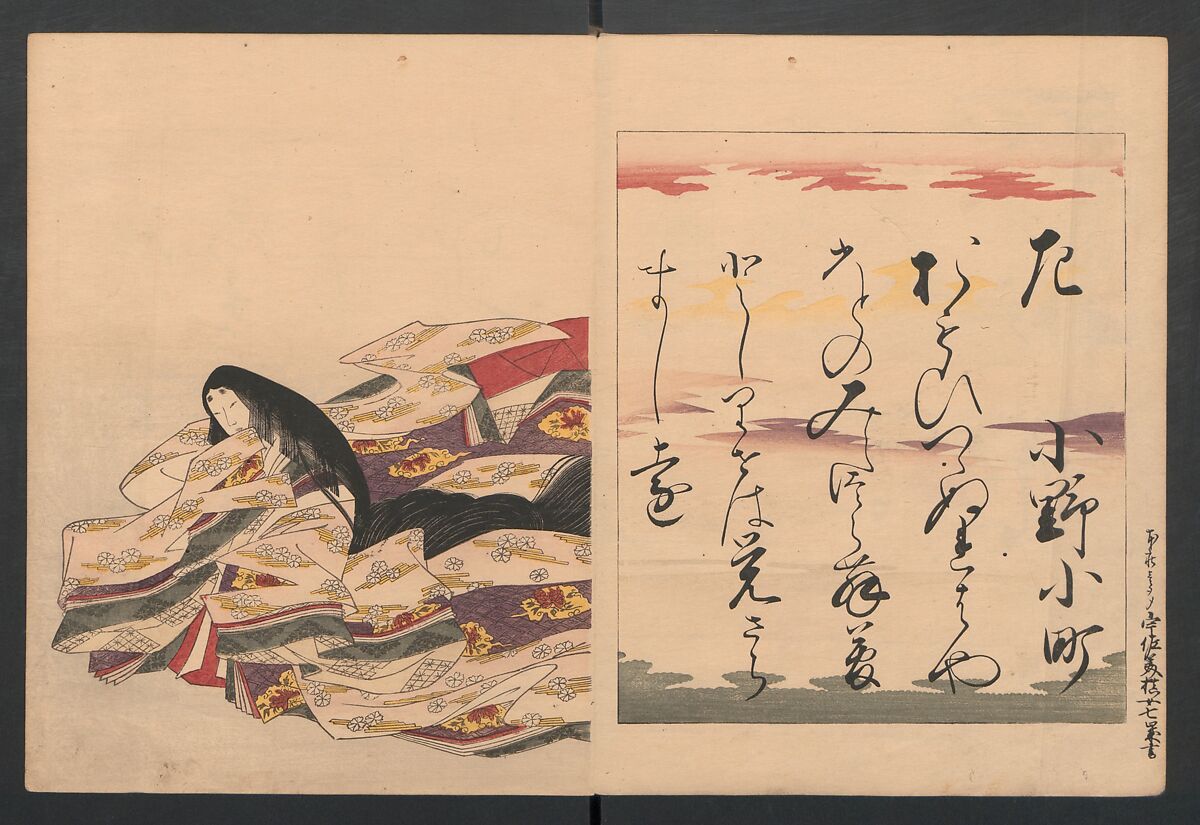 左 小野小町
おもひつゝぬれはや
ひとのみえつらむ夢
としりせは覚さら
ましを
宇佐美 女七歳書